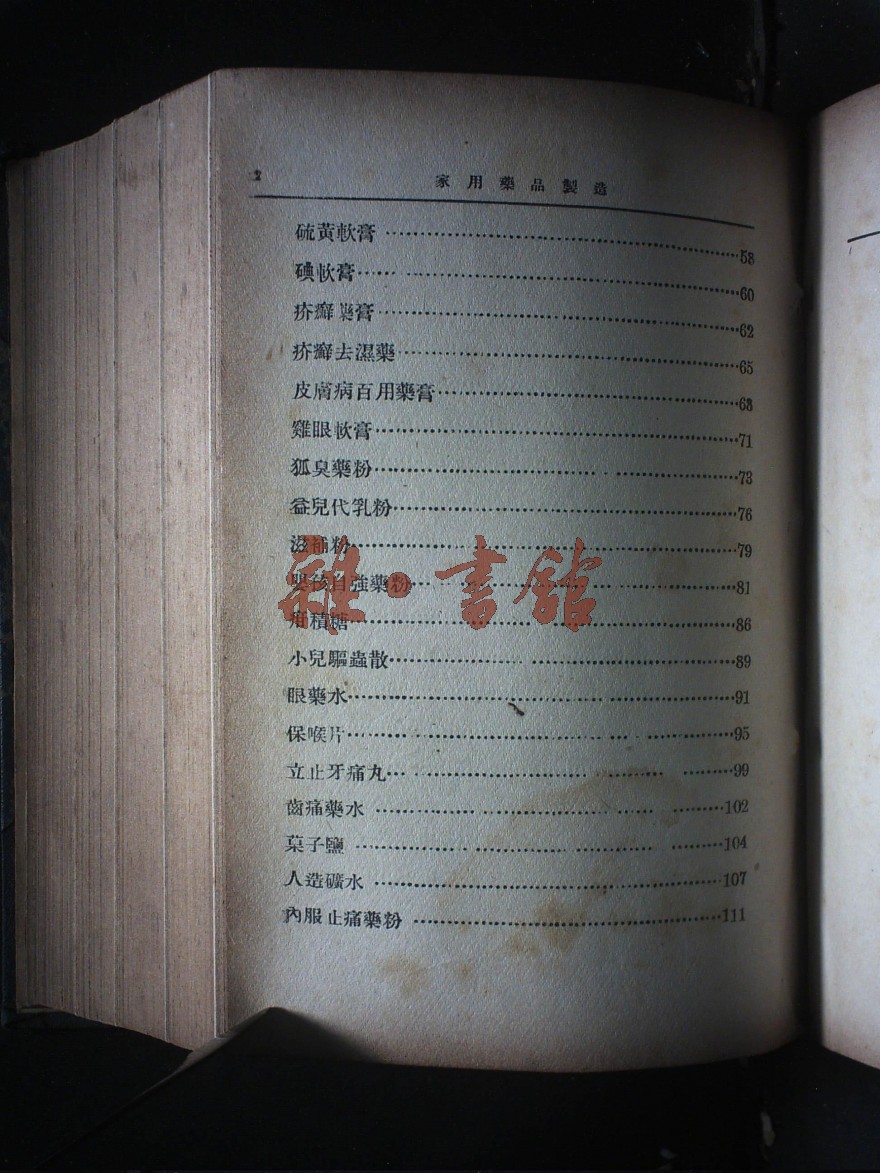 2 家用藥品製造
硫黃軟膏 58
碘軟膏 60
疥癬藥膏 62
疥癬去濕藥 65
皮膚病百用藥膏 68
雞眼軟膏 71
狐臭藥粉 73
益兒代乳粉 76
滋補粉 79
嬰孩自強藥粉 81
疳積糖 86
小兒驅蟲散 89
眼藥水 91
保喉片 95
立止牙痛丸 99
齒痛藥水 102
菓子鹽 104
人造礦水 107
內服止痛藥粉 111
雜·書舘